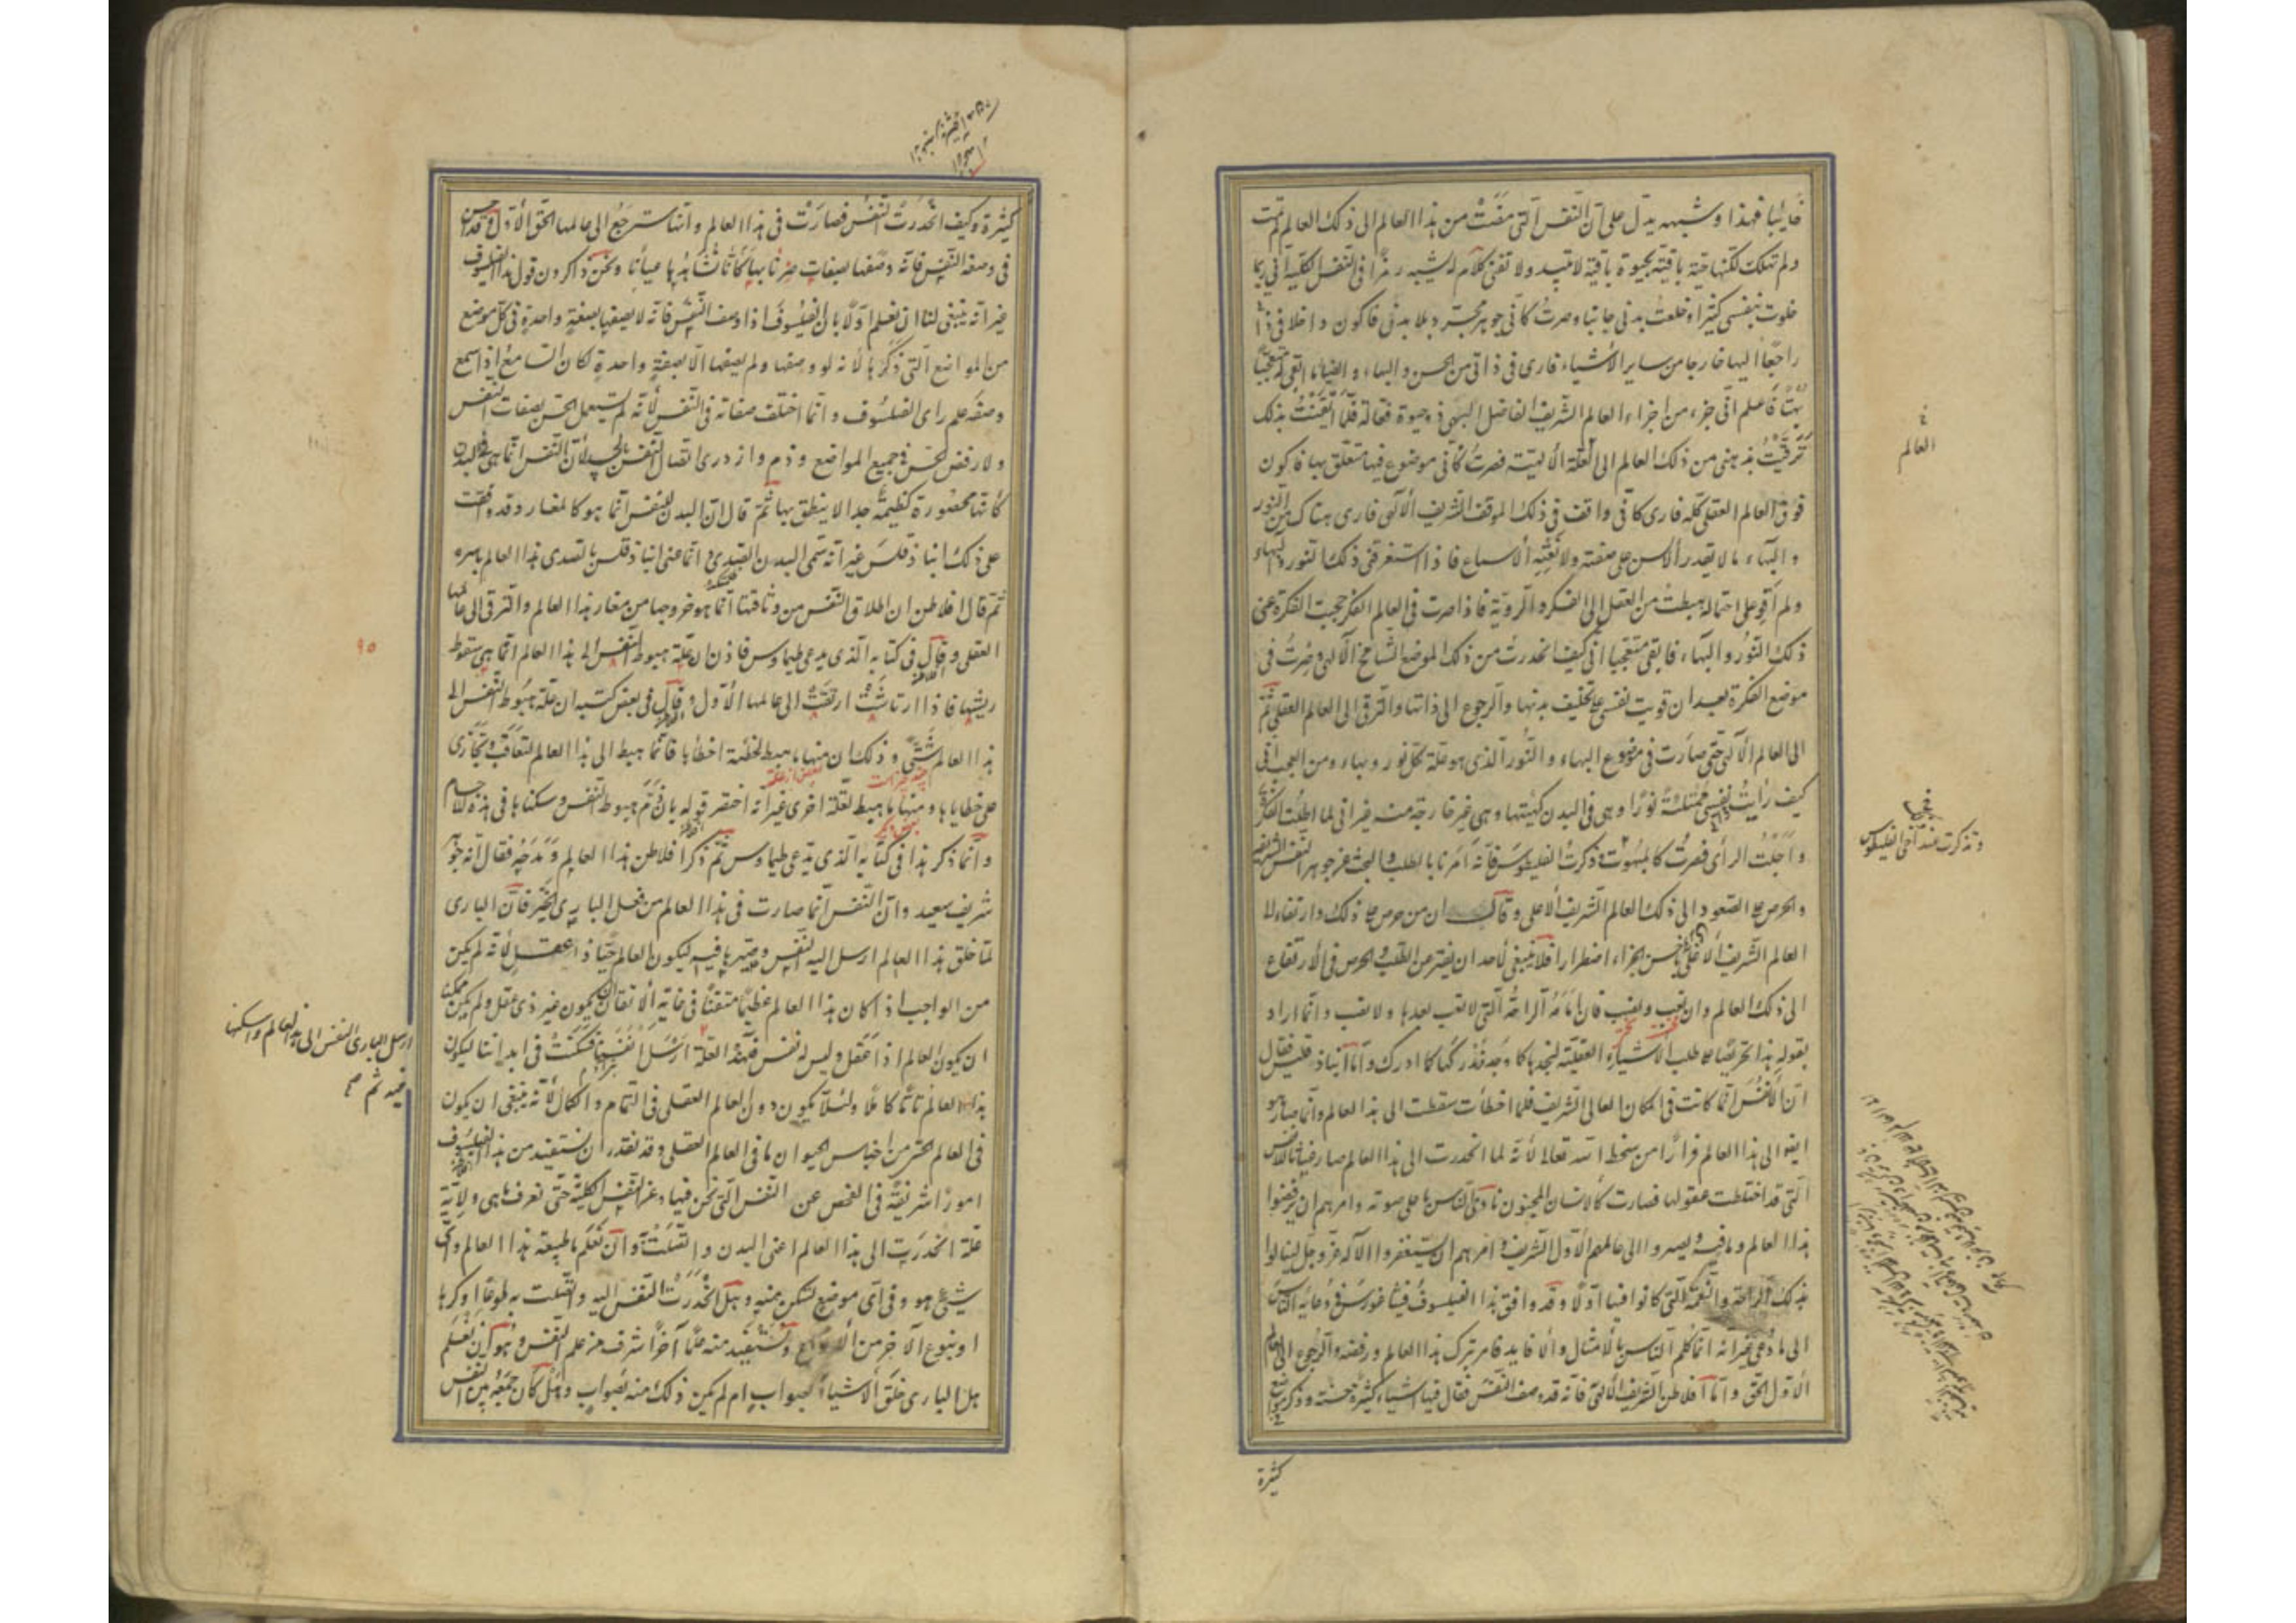 غايبا فهذا وشبهه يدل على ان النفس التى مضت من هذا العالم الى ذلك العالم تمت
ولم تهلك لكنها حية باقية بحيوة باقية لا تبيد ولا تفنى كلام له يشبه رمزا فى النفس الكلية انى ربما
خلوت بنفسى كثيرا وخلعت بدنى جانبا وصرت كانى جوهر مجرد بلا بدن فاكون داخلا فى ذاتى
راجعا اليها خارجا من ساير الأشياء فارى فى ذاتى من الحسن والبهاء والضياء ما ابقى له متعجبا
بهتا فاعلم انى جزء من اجزاء العالم الشريف الفاضل البهى ذو حيوة فعالة فلما ايقنت بذلك
ترقيت بذهنى من ذلك العالم الى العلة الالهية فصرت كانى موضوع فيها متعلق بها فاكون
فوق العالم العقلى كله فارى كانى واقف فى ذلك الموقف الشريف الالهى فارى هناك من النور
والبهاء ما لا يقدر الألسن على صفته ولا تعيه الاسماع فاذا استغرقنى ذلك النور والبهاء
ولم اقو على احتماله هبطت من العقل الى الفكر والروية فاذا صرت فى العالم الفكر حجبت الفكرة عنى
ذلك النور والبهاء فابقى متعجبا انى كيف انحدرت من ذلك الموضع الشامخ الالهى وصرت فى
موضع الفكرة بعد ان قويت نفسى على تخليف بدنها والرجوع الى ذاتها والترقى الى العالم العقلى ثم
الى العالم الالهى حتى صارت فى موضع البهاء والنور الذى هو علة كل نور وبهاء ومن العجب انى
كيف رأيت نفسى ممتلئة نورا وهى فى البدن كهيئتها وهى غير خارجة منه غير انى لما اطلت الفكرة
واجلت الرأى فصرت كالمبهوت وذكرت الفليطوس فانه امرنا بالطلب والبحث عن جوهر النفس الشريف
والحرص على الصعود الى ذلك العالم الشريف الأعلى وقال ان من حرص على ذلك وارتقاء الى
العالم الشريف الأعلى احسن الجزاء اضطرارا فلا ينبغى لاحد ان يفتر عن الطلب والحرص فى الارتفاع
الى ذلك العالم وان تعب ونصب فان امامه الراحة التى لا تعب بعدها ولا نصب وانما اراد
بقوله هذا تحريضا على طلب الأشياء العقلية لنجدها كما وجد وندركها كما ادرك واما انباذقليس فقال
ان الأنفس انما كانت فى المكان العالى الشريف فلما اخطأت سقطت الى هذا العالم وانما صار هو
ايضا الى هذا العالم فرارا من سخط الله تعالى لانه لما انحدرت الى هذا العالم صار غياثا للأنفس
التى قد اختلطت عقولها فصارت كالانسان المجنون نادى الناس باعلى صوته وامرهم ان يرفضوا
هذا العالم وما فيه ويصيروا الى عالمهم الأول الشريف وامرهم ان يستغفروا الاله عز وجل لينالوا
بذلك الراحة والنعمة التى كانوا فيها اولا وقد وافق هذا الفيلسوف فيثاغورس فى دعائه الناس
الى ما دعى غير انه انما كلم الناس بالامثال والأفايد فامر بترك هذا العالم ورفضه والرجوع الى العالم
الأول الحق واما افلاطن الشريف الالهى فانه قد وصف النفس فقال فيها اشياء كثيرة حسنة وذكر مواضع
كثيرة
العالم
وتذكرت عند اخى الفليطوس
كثيرة وكيف انحدرت النفس فصارت فى هذا العالم وانها سترجع الى عالمها الحق الأول وقد احسن
فى وصفه النفس فانه وصفها بصفات صرنا بها كانا نشاهدها عيانا ونحن ذاكرون قول هذا الفيلسوف
غير انه ينبغى لنا ان نعلم اولا بان الفيلسوف اذا وصف النفس فانه لا يصفها بصفة واحدة فى كل موضع
من المواضع التى ذكرها لانه لو وصفها ولم يصفها الا بصفة واحدة لكان السامع اذا سمع
وصفه علم راى الفيلسوف وانما اختلف صفاته فى النفس لانه لم يستعمل الحس بصفات النفس
ولا رفض الحس فى جميع المواضع وذم وازدرى اتصال النفس بالجسد لأن النفس انما هى فى البدن
كانها محصورة كظيمة جدا لا ينطق بها ثم قال ان البدن للنفس انما هو كالمغار وقد وافقه
على ذلك انباذقلس غير انه سمى البدن الصدى وانما عنى انباذقلس بالصدى هذا العالم باسره
ثم قال افلاطن ان اطلاق النفس من وثاقها انما هو خروجها من مغار هذا العالم والترقى الى عالمها
العقلى وقال فى كتابه الذى يدعى طيماوس فاذن ان علة هبوط النفس الى هذا العالم انما هى سقوط
ريشها فاذا ارتاشت ارتقت الى عالمها الأول وقال فى بعض كتبه ان علة هبوط النفس الى
هذا العالم شتى وذلك ان منها ما هبط لخطيئة اخطأها فانما هبط الى هذا العالم لتعاقب وتجازى
على خطاياها ومنها ما هبط لعلة اخرى غير انه اختصر قوله بان ذم هبوط النفس وسكناها فى هذه الاجسام
وانما ذكر هذا فى كتابه الذى يدعى طيماوس ثم ذكر افلاطن هذا العالم ومدحه فقال انه جوهر
شريف سعيد وان النفس انما صارت فى هذا العالم من فعل البارى الخير فان البارى
لما خلق هذا العالم ارسل اليه النفس وصيرها فيه ليكون العالم حيا ذا عقل لانه لم يكن
من الواجب اذا كان هذا العالم عظيما متقنا فى غاية الاتقان ان يكون غير ذى عقل ولم يكن ممكنا
ان يكون العالم اذا عقل وليس له نفس فلهذه العلة ارسل النفس فسكنت فى ابداننا ليكون
هذا العالم تاما كاملا ولئلا يكون دون العالم العقلى فى التمام والكمال لانه ينبغى ان يكون
فى العالم الحسى من اجناس الحيوان ما فى العالم العقلى وقد نقدر ان نستفيد من هذا الفيلسوف
امورا شريفة فى الفحص عن النفس التى نحن فيها وعن النفس الكلية حتى نعرف ما هى ولاية
علة انحدرت الى هذا العالم اعنى البدن واتصلت به وان نعلم ما طبيعة هذا العالم واى
شىء هو وفى اى موضع تسكن منه وهل انحدرت النفس اليه واتصلت به طوعا او كرها
او بنوع الآخر من الأنواع ونستفيد منه علما آخر اشرف من علم النفس وهو ان نعلم
هل البارى خلق الأشياء بصواب ام لم يكن ذلك منه بصواب وهل كان جمعه بين النفس
٩٥
ارسل البارى النفس الى هذا العالم واسكنها
فيه ثم